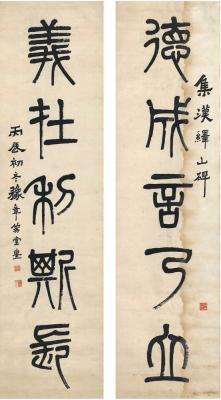 集漢繹山碑
德成言乃立
義在利斯長
丙辰初冬豫章